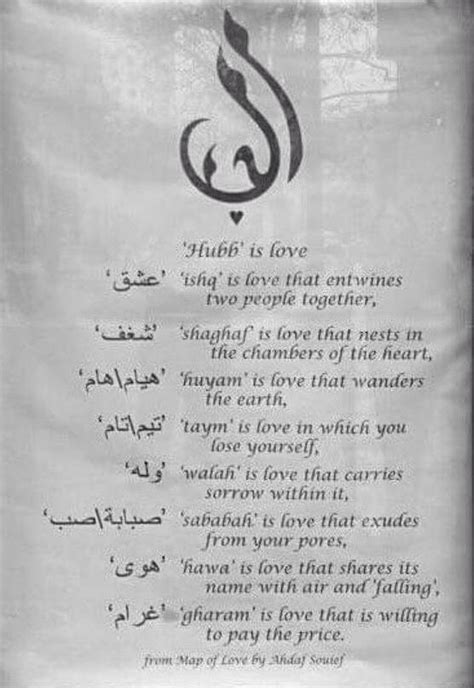 'Hubb' is love
‘عشق‘ 'ishq' is love that entwines
two people together,
‘شغف‘ 'shaghaf' is love that nests in
the chambers of the heart,
‘هيام\هام‘ 'huyam' is love that wanders
the earth,
‘تيم\تام‘ 'taym' is love in which you
lose yourself,
‘وله‘ 'walah' is love that carries
sorrow within it,
‘صبابة\صب‘ 'sababah' is love that exudes
from your pores,
‘هوى‘ 'hawa' is love that shares its
name with air and 'falling',
‘غرام‘ 'gharam' is love that is willing
to pay the price.
from Map of Love by Ahdaf Souief